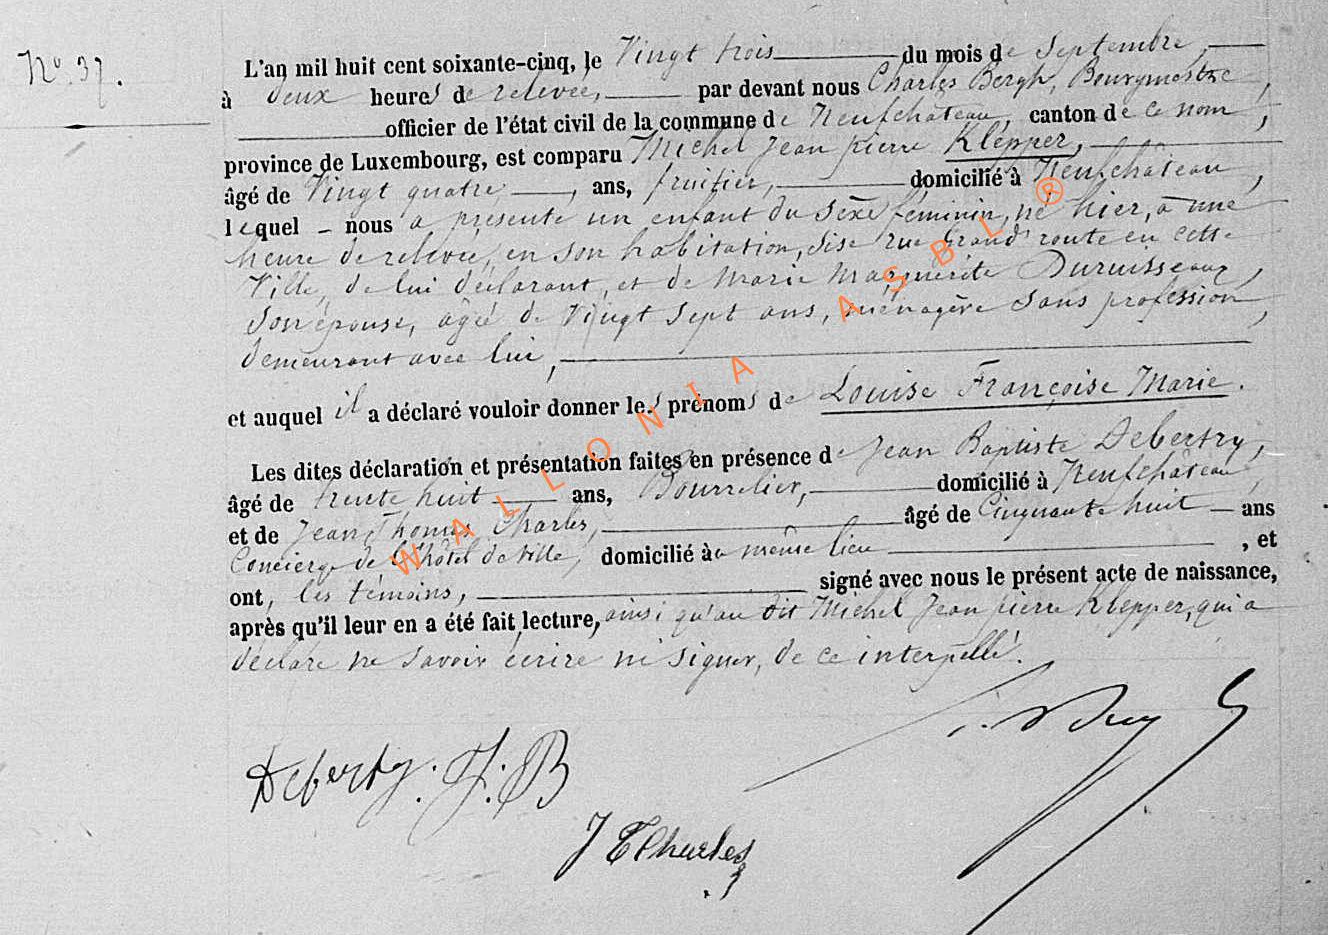 N.º 37.
L'an mil huit cent soixante-cinq, le Vingt trois du mois de Septembre,
à deux heures de relevée, par devant nous Charles Bergh, Bourgmestre,
officier de l'état civil de la commune de Neufchâteau, canton de ce nom,
province de Luxembourg, est comparu Michel Jean pierre Klepper,
âgé de Vingt quatre, ans, fruitier, domicilié à Neufchâteau,
lequel - nous a présenté un enfant du sexe féminin, né hier, à une
heure de relevée, en son habitation, sise rue Grand' route en cette
Ville, de lui déclarant, et de Marie Marguerite Duruisseaux,
Son épouse, âgée de Vingt Sept ans, ménagère Sans profession,
demeurant avec lui,
et auquel il a déclaré vouloir donner les prénoms de Louise Françoise Marie.
Les dites déclaration et présentation faites en présence de Jean Baptiste Debertry,
âgé de trente huit ans, Bourrelier, domicilié à Neufchâteau,
et de Jean Thomas Charles, âgé de Cinquante huit ans
Concierge de l'hôtel de Ville, domicilié à même lieu, et
ont, les témoins, signé avec nous le présent acte de naissance,
après qu'il leur en a été fait lecture, ainsi qu'au dit Michel Jean pierre Klepper, qui a
déclaré ne Savoir écrire ni Signer, de ce interpellé.
Deberty. J. B
J T Charles
WALLONIA ASBL ®